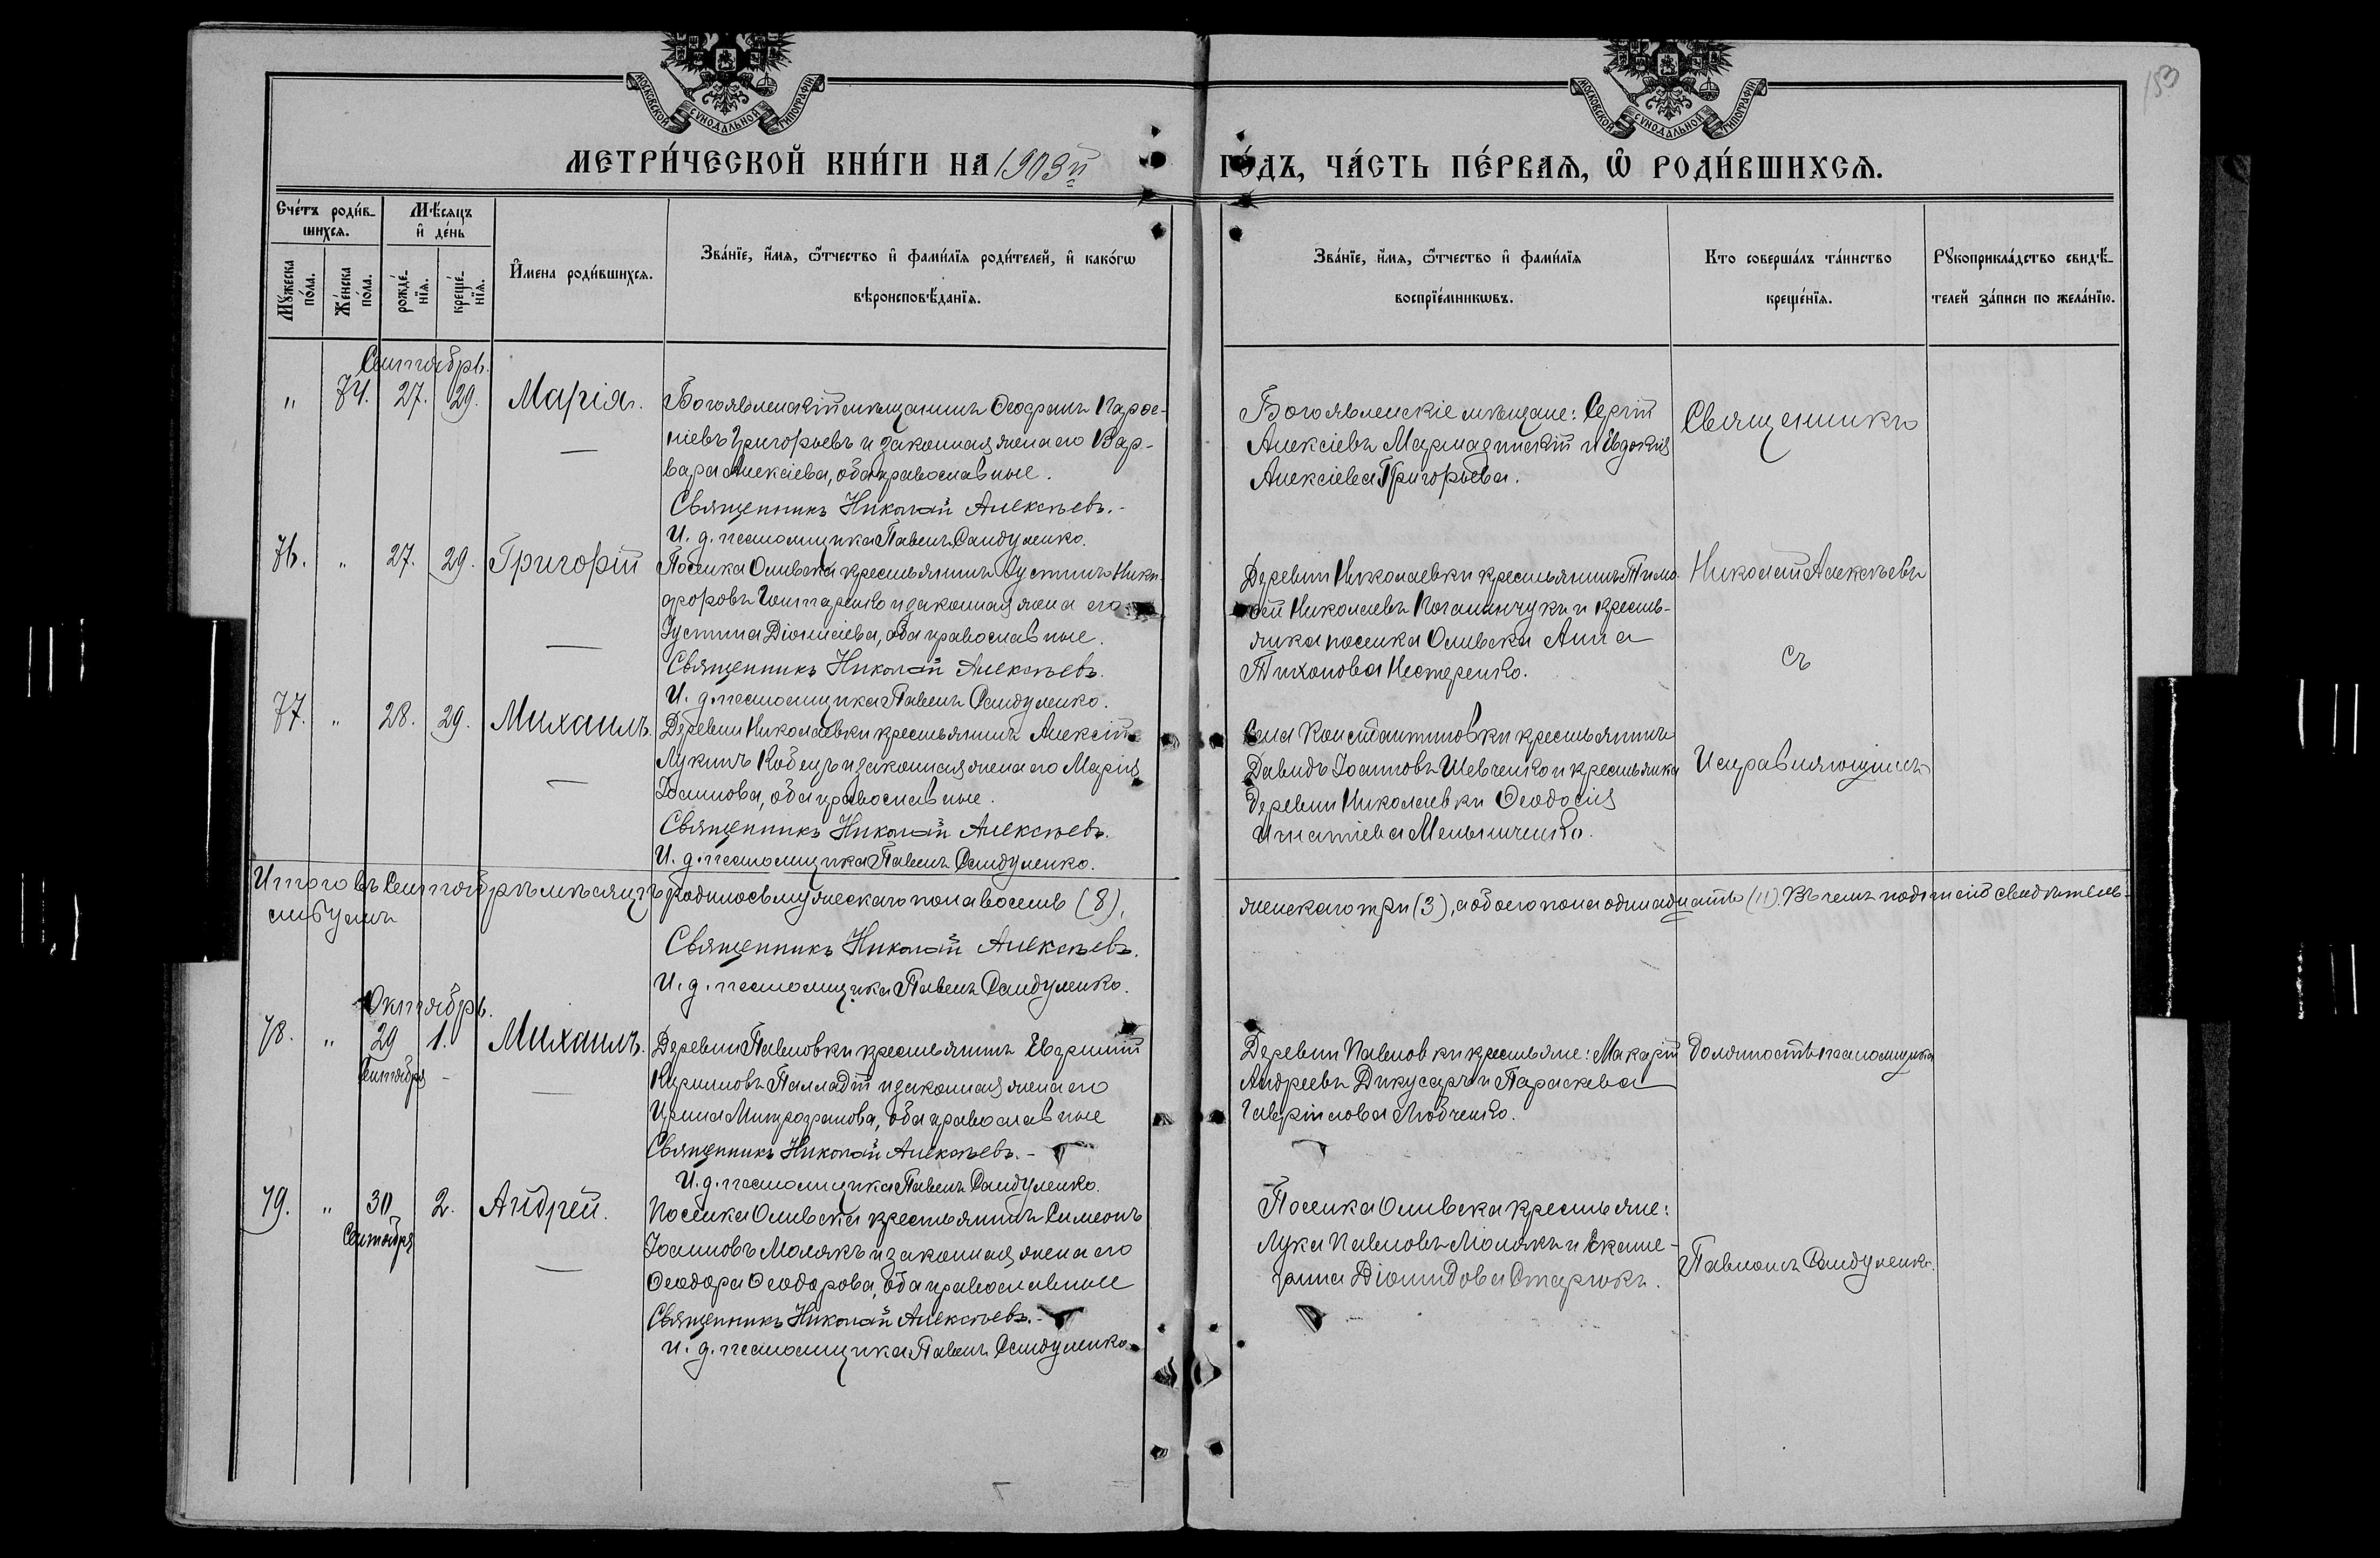 153
МОСКОВСКОЙ СѴНОДАЛЬНОЙ ТИПОГРАФІИ
МОСКОВСКОЙ СѴНОДАЛЬНОЙ ТИПОГРАФІИ
МЕТРИ́ЧЕСКОЙ КНИ́ГИ НА 1903й ГО́ДЪ, ЧА́СТЬ ПЕ́РВАѦ, Ѡ҆ РОДИ́ВШИХСѦ.
Сче́тъ роди́в-
шихсѧ.
Мѣ́сѧцъ
и҆ де́нь
Мꙋ́жеска
по́ла.
Же́нска
по́ла.
рожде́-
нїѧ.
креще́-
нїѧ.
И҆мена роди́вшихсѧ.
Зва́нїе, и҆́мѧ, ѻ҆́тчество и҆ фами́лїѧ роди́телей, и҆ како́гѡ
вѣроисповѣ́данїѧ.
Зва́нїе, и҆́мѧ, ѻ҆́тчество и҆ фами́лїѧ
воспрїе́мникѡвъ.
Кто соверша́лъ та́инство
креще́нїѧ.
Рꙋкоприкла́дство свидѣ́-
телей за́писи по жела́нїю.
Сентябрь.
" 74. 27. 29. Марія.
Богоявленскій мѣщанинъ Ѳеофанъ Парѳе-
ніевъ Григорьевъ и законная жена его Вар-
вара Алексіева, оба православные.
Священникъ Николай Алексѣевъ.-
И. д. псаломщика Павелъ Сандуленко.
Богоявленскіе мѣщане: Сергій
Алексіевъ и Евдокія
Алексіева Григорьева.
Священникъ
76. " 27. 29. Григорій
Поселка Ольвска крестьянинъ Іустинъ Ники-
форовъ и законная жена его
Іустина Діонисіева, оба православные.
Священникъ Николай Алексѣевъ.
И. д. псаломщика Павелъ Сандуленко.
Деревни Николаевки крестьянинъ Тимо-
ѳей Николаевъ и кресть-
янка поселка Ольвска Анна
Тихонова Нестеренко.
Николай Алексѣевъ
съ
77. " 28. 29. Михаилъ.
Деревни Николаевки крестьянинъ Алексій
Лукинъ Кобецъ и законная жена его Марія
Іоаннова, оба православные.
Священникъ Николай Алексѣевъ.
И. д. псаломщика Павелъ Сандуленко.
Села Константиновки крестьянинъ
Давидъ Іоанновъ Шевченко и крестьянка
деревни Николаевки Ѳеодосія
Игнатіева Мельниченко.
Исправляющимъ
Итого въ Сентябрѣ мѣсяцѣ родилось мужескаго пола восемь (8), женскаго три (3), а обоего пола одинадцать (11). Въ чемъ подписью свидѣтель-
ствуемъ
Священникъ Николай Алексѣевъ.
И. д. псаломщика Павелъ Сандуленко.
Октябрь.
78. " 29 1. Михаилъ.
Сентября
Деревни Павловки крестьянинъ
Кирилловъ Палладій и законная жена его
Ирина Митрофанова, оба православные
Священникъ Николай Алексѣевъ.-
И. д. псаломщика Павелъ Сандуленко.
Деревни Павловки крестьяне: Макарій
Андреевъ Дикусаръ и Параскева
Гавріилова Любченко.
должность псаломщика
79. " 30 2. Андрей.
Сентября
Поселка Ольвска крестьянинъ Симеонъ
Іоанновъ Молякъ и законная жена его
Ѳеодора Ѳеодорова, оба православные
Священникъ Николай Алексѣевъ.-
И. д. псаломщика Павелъ Сандуленко.
Поселка Ольвска крестьяне:
Лука Павловъ Молякъ и Екате-
рина Діомидова Старюкъ.
Павломъ Сандуленко.